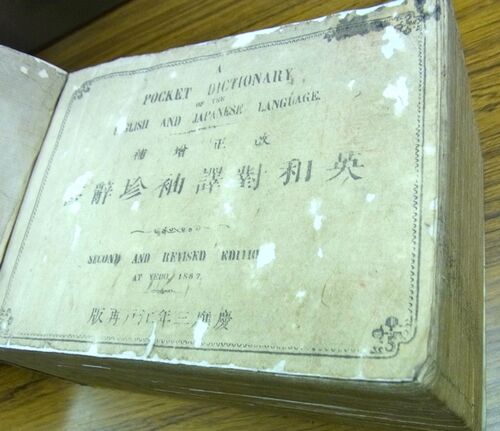 A
POCKET DICTIONARY
OF THE
ENGLISH AND JAPANESE LANGUAGE.
改正增補
英和對譯袖珍辭
SECOND AND REVISED EDITION
AT YEDO, 1867.
慶應三年江戶再版